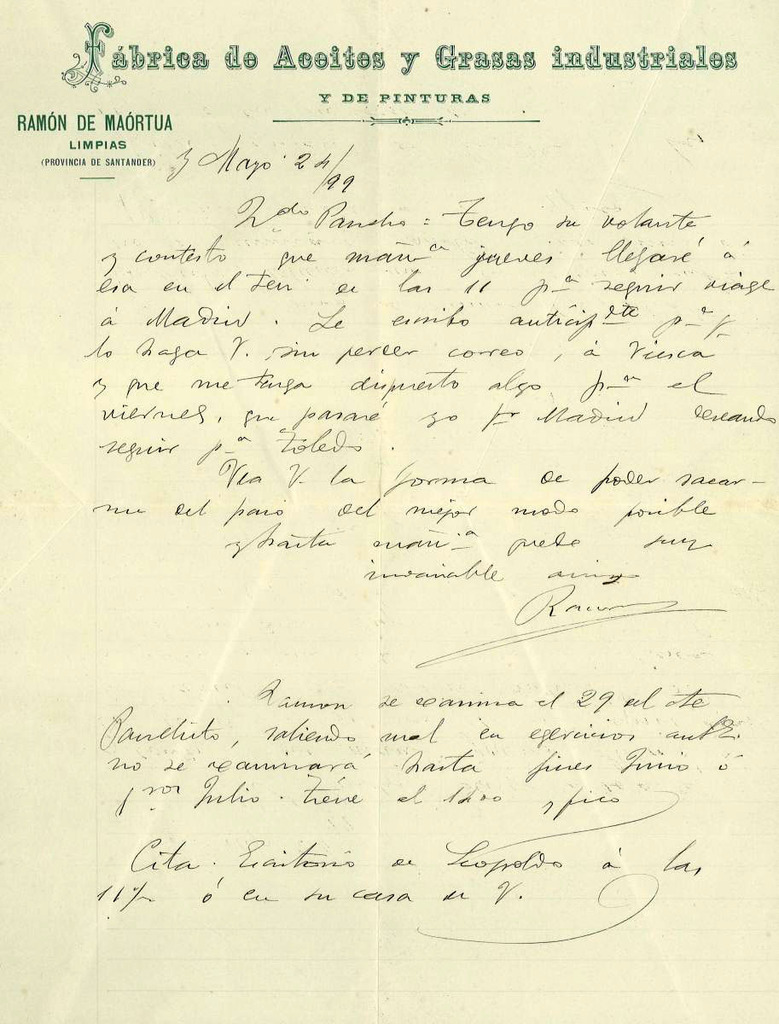 Fábrica de Aceites y Grasas industriales
Y DE PINTURAS
RAMÓN DE MAÓRTUA
LIMPIAS
(PROVINCIA DE SANTANDER)
y Mayo 24/99
Qdo Pancho = Tengo su volante
y contesto que mañna jueves llegaré á
esa en el tren de las 11 pa seguir viage
á Madrid. Le escribo anticipdte pa q
lo haga V. sin perder correo, á Viesca
y que me tenga dispuesto algo pa el
viernes, que pasaré yo pr Madrid deseando
seguir pa Toledo.
Vea V. la forma de poder sacar-
me del paso del mejor modo posible
y hasta mañna queda suyo
invariable amigo
Ramon
Ramon se examina el 29 del cte
Panchito, saliendo mal en egercicios
no se examinará hasta fines Junio ó
pros Julio. tiene el 1400 y pico
Cita. Escritorio de Leopoldo á las
11½ ó en su casa de V.